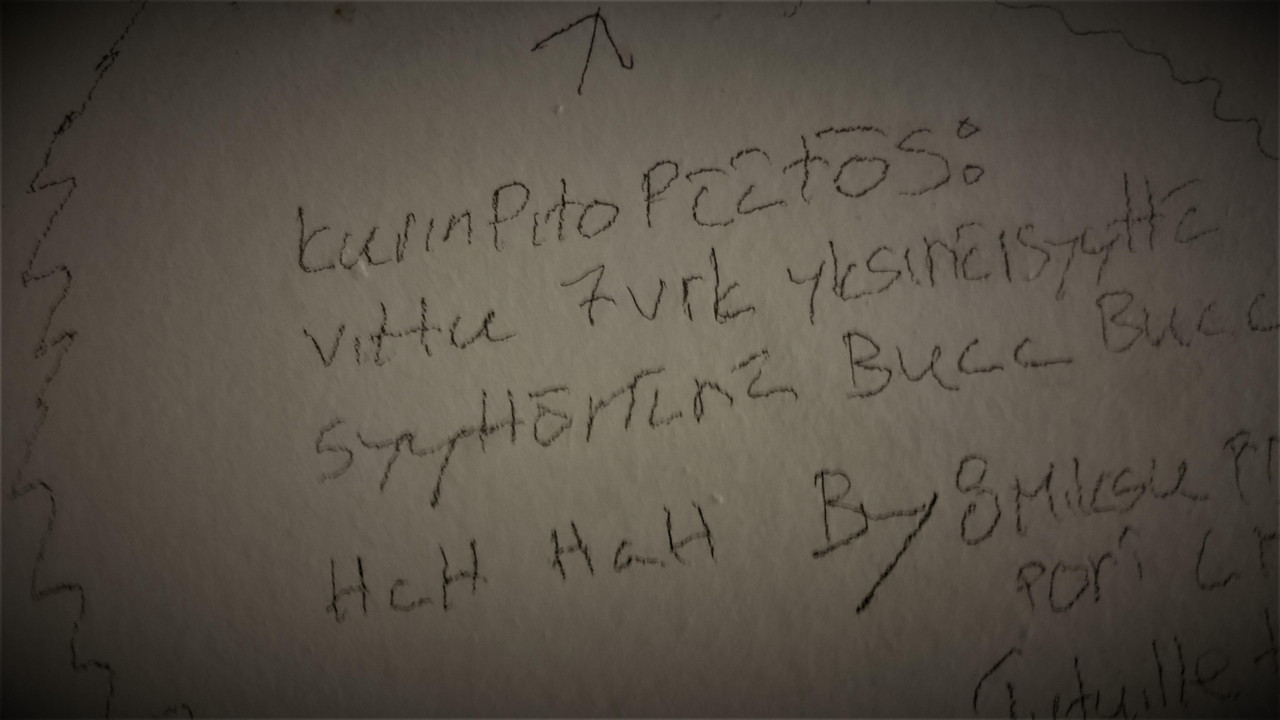 kurinPito PÄÄTÖS:
vittu 7 vrk yksinÄisyyttÄ
syyHÖrTÄnÄ Bucc Bucc
HaH HaH By 8 Miksu
Pori